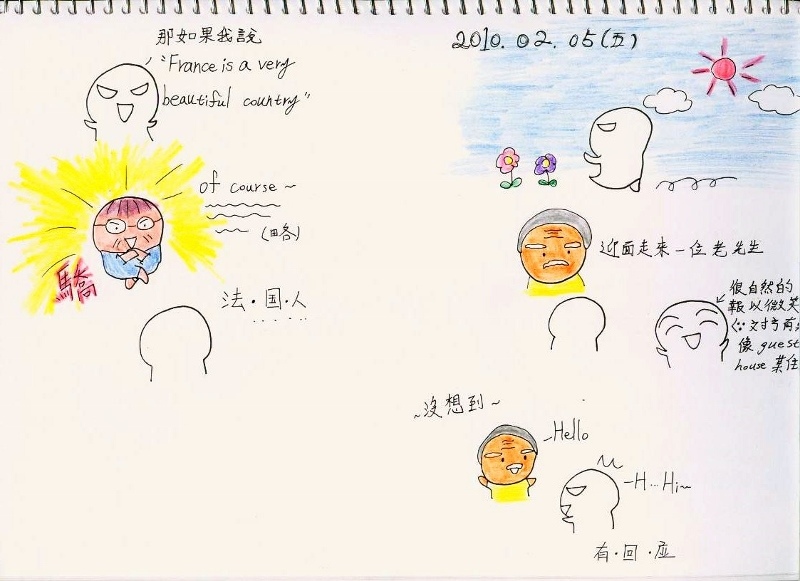 那如果我說
"France is a very
beautiful country"
of course ~
(略)
驕
法·国·人
2010.02.05(五)
迎面走來一位老先生
很自然的
報以微笑
(∵対方有点
像 guest
house 某住
~沒想到~
Hello
H...Hi~
有·回·应